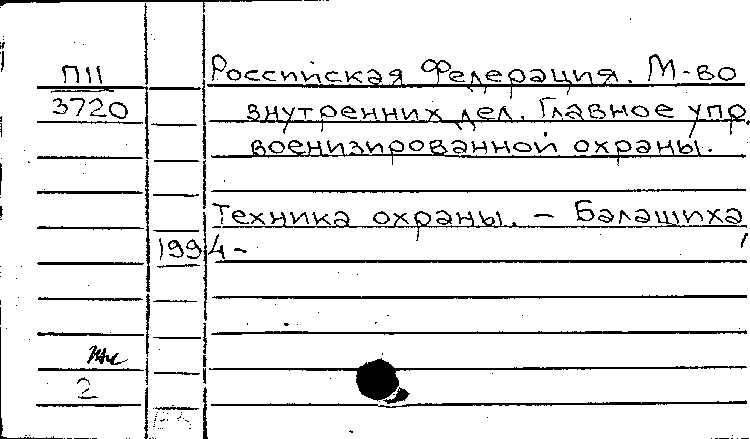 П11
3720
Российская Федерация. М-во
внутренних дел. Главное упр.
военизированной охраны.
Техника охраны. – Балашиха,
1994-
2